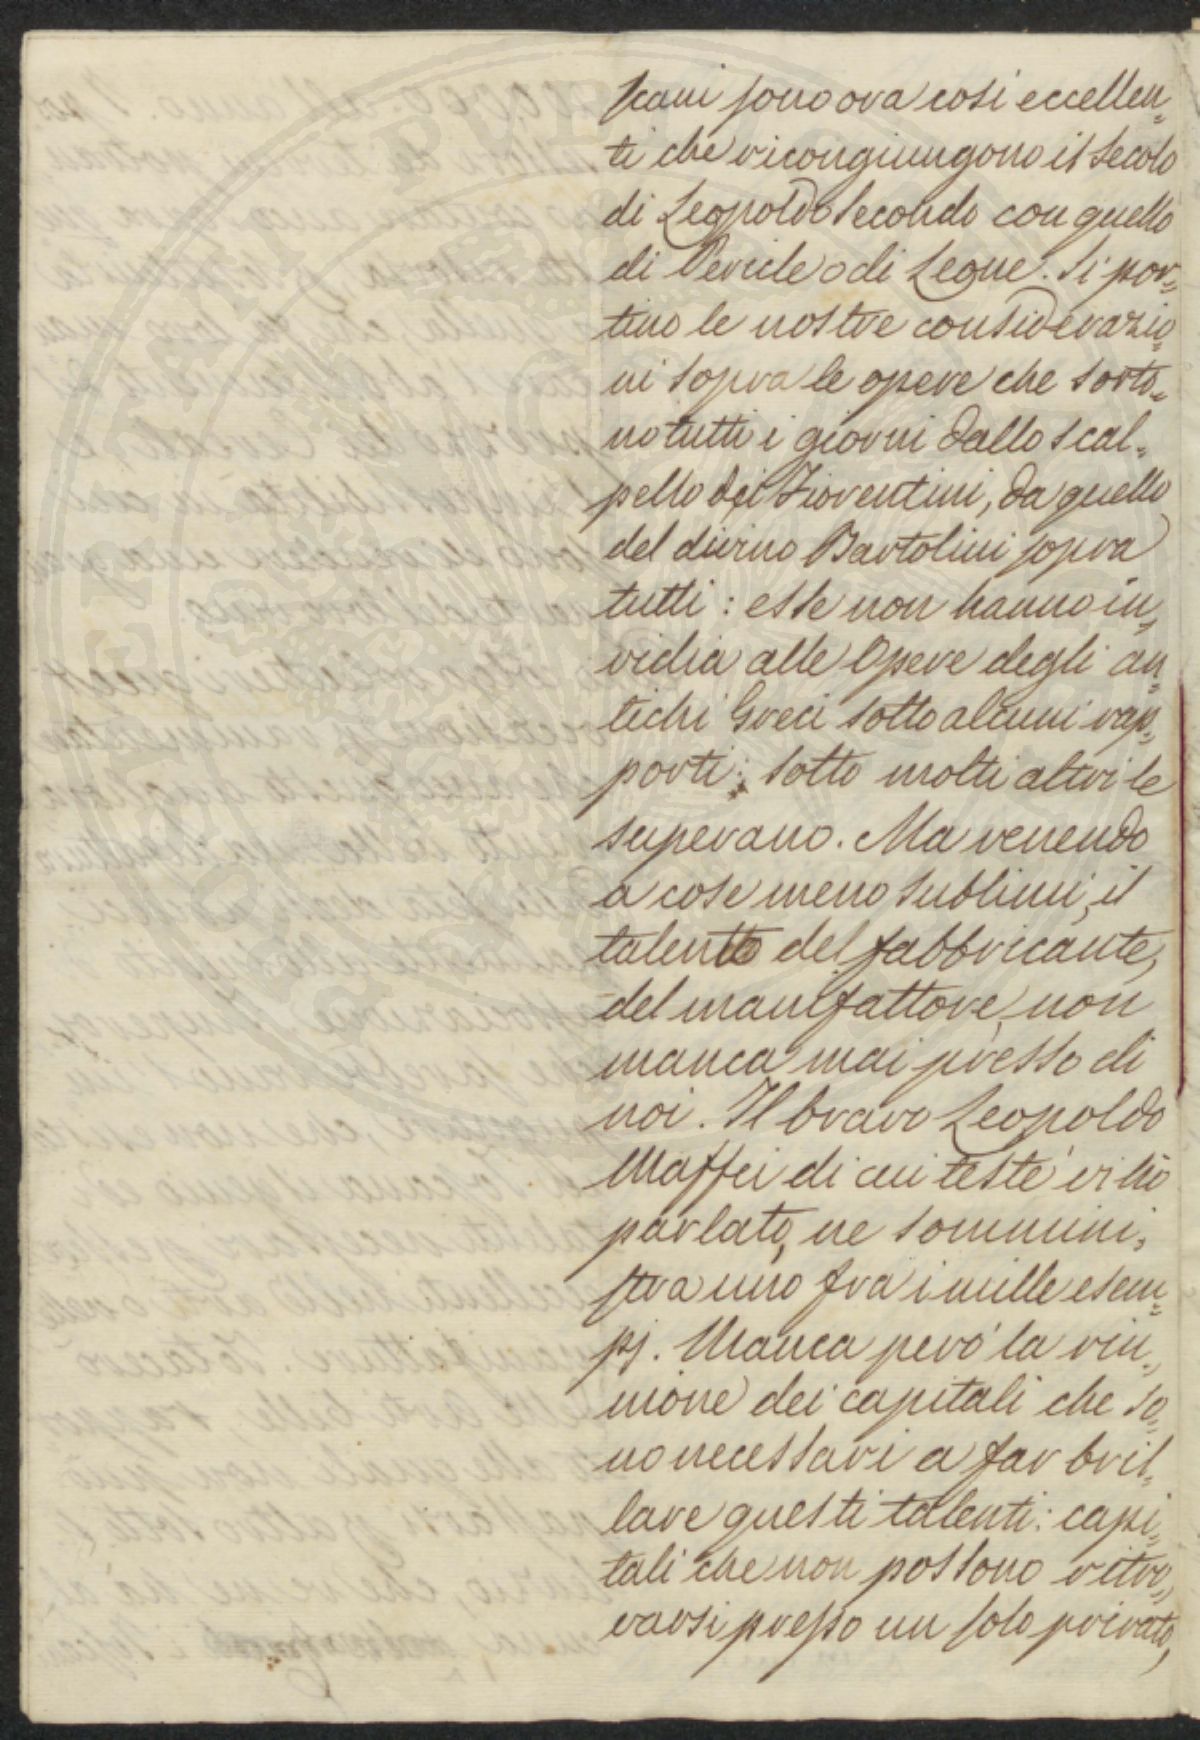 scani sono ora così eccellen=
ti che ricongiungono il Secolo
di Leopoldo Secondo con quello
di Pericle o di Leone. Si por=
tino le nostre considerazio=
ni sopra le opere che sorto=
no tutti i giorni dallo scal=
pello dei Fiorentini, da quello
del divino Bartolini sopra
tutti: esse non hanno in=
vidia alle Opere degli an=
tichi Greci sotto alcuni rap=
porti; sotto molti altri le
superano. Ma venendo
a cose meno sublimi, il
talento del fabbricante,
del manifattore, non
manca mai presso di
noi. Il bravo Leopoldo
Maffei di cui testè vi hò
parlato, ne sommini=
stra uno fra i mille esem=
pj. Manca però la riu=
nione dei capitali che so=
no necessari a far bril=
lare questi talenti: capi=
tali che non possono ritro=
varsi presso un solo privato,